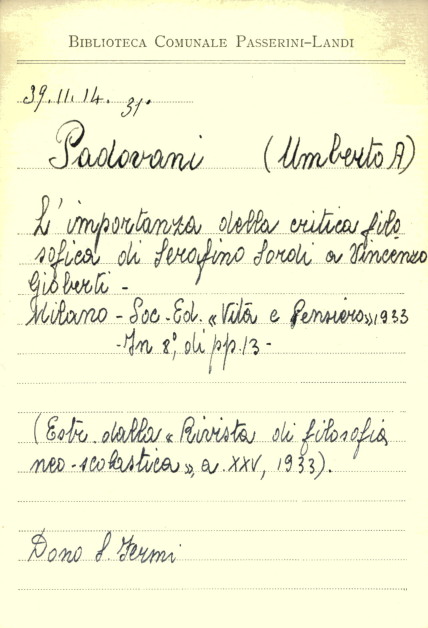 BIBLIOTECA COMUNALE PASSERINI-LANDI
39.11.14. 31.
Padovani (Umberto A)
L'importanza della critica filo
sofica di Serafino Sordi a Vincenzo
Gioberti -
Milano - Soc. Ed. «Vita e Pensiero», 1933
- In 8°, di pp. 13 -
(Estr. dalla «Rivista di filosofia
neo-scolastica», a. XXV, 1933).
Dono S. Fermi